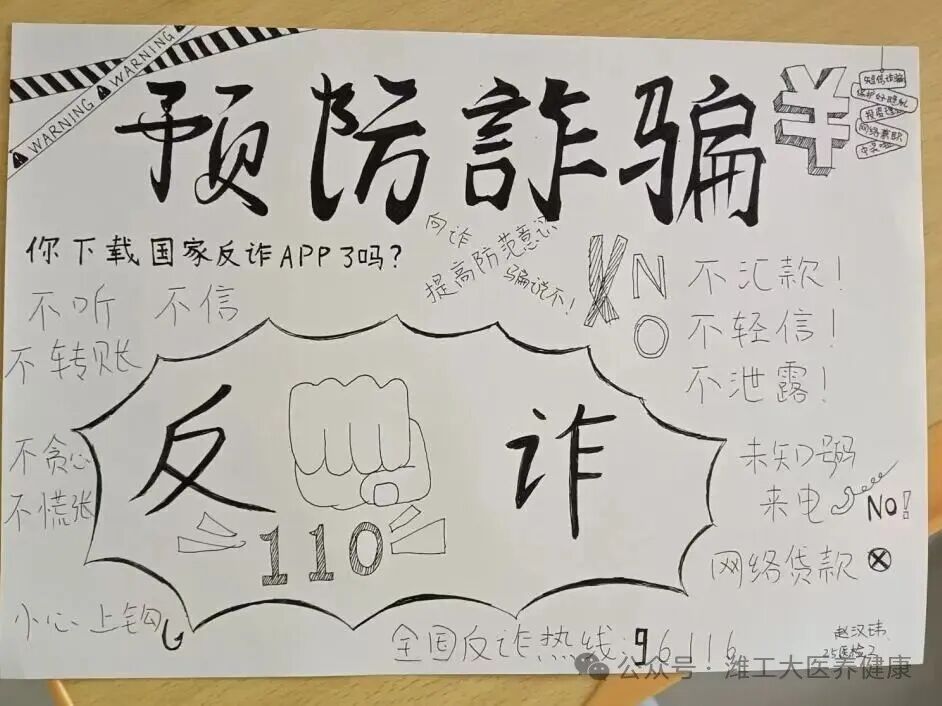 WARNING WARNING
WARNING
预防詐骗
¥
短信诈骗
保护好隐私
网络兼职
你下载国家反诈APP了吗?
向诈
骗说不!
提高防范意识
不听 不信
不转账
NO
不汇款!
不轻信!
不泄露!
反诈
110
不贪心
不慌张
未知号码
来电 NO!
网络贷款
小心上钩
全国反诈热线:96116
赵汉玮
25医检2
公众号·潍工大医养健康